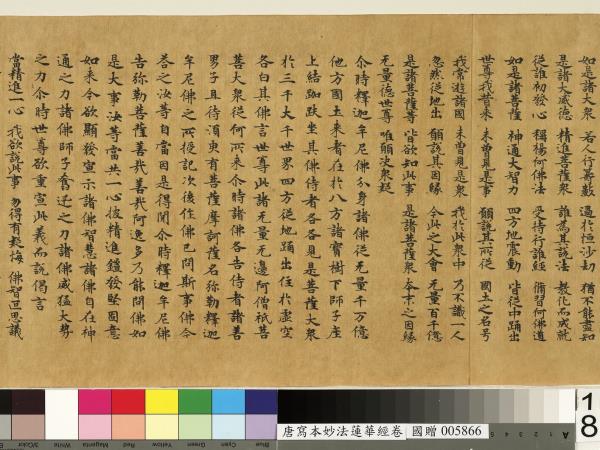 如是諸大眾 若人行籌數 過於恒沙劫 猶不能盡知
是諸大威德 精進菩薩眾 誰為其說法 教化而成就
從誰初發心 稱楊何佛法 受持行誰經 修習何佛道
如是諸菩薩 神通大智力 四方地震動 皆從中踊出
世尊我昔來 未曾見是事 願說其所從 國土之名号
我常遊諸國 未曾見是眾 我於此眾中 乃不識一人
忽然從地出 願說其因緣 今此之大會 无量百千億
是諸菩薩等 皆欲知此事 是諸菩薩眾 本末之因緣
无量德世尊 唯願決眾疑
尒時釋迦牟尼佛分身諸佛從无量千万億
他方國土來者在於八方諸寶樹下師子座
上結跏趺坐其佛侍者各各見是菩薩大眾
於三千大千世界四方從地踊出住於虛空
各白其佛言世尊此諸无量无邊阿僧祇菩
薩大眾從何所來尒時諸佛各告侍者諸善
男子且待須臾有菩薩摩訶薩名弥勒釋迦
牟尼佛之所授記次後作佛已問斯事佛今
荅之汝等自當因是得聞尒時釋迦牟尼佛
告弥勒菩薩善哉善哉阿逸多乃能問佛如
是大事汝等當共一心披精進鎧發堅固意
如來今欲顯發宣示諸佛智慧諸佛自在神
通之力諸佛師子奮迅之力諸佛威猛大勢
之力尒時世尊欲重宣此義而說偈言
當精進一心 我欲說此事 勿得有疑悔 佛智叵思議
3/Color
White
Magenta
Red
Yellow
Green
Cyan
Blue
唐寫本妙法蓮華經卷 國贈 005866
A
18